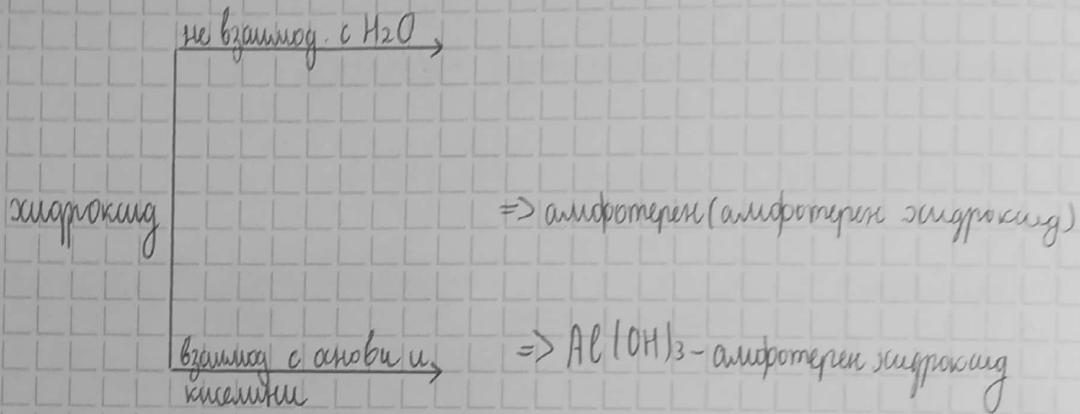 не взаимод. с H₂O
хидроксид => амфотерен (амфотерен хидроксид)
взаимод с основи и => Al(OH)₃ - амфотерен хидроксид
киселини